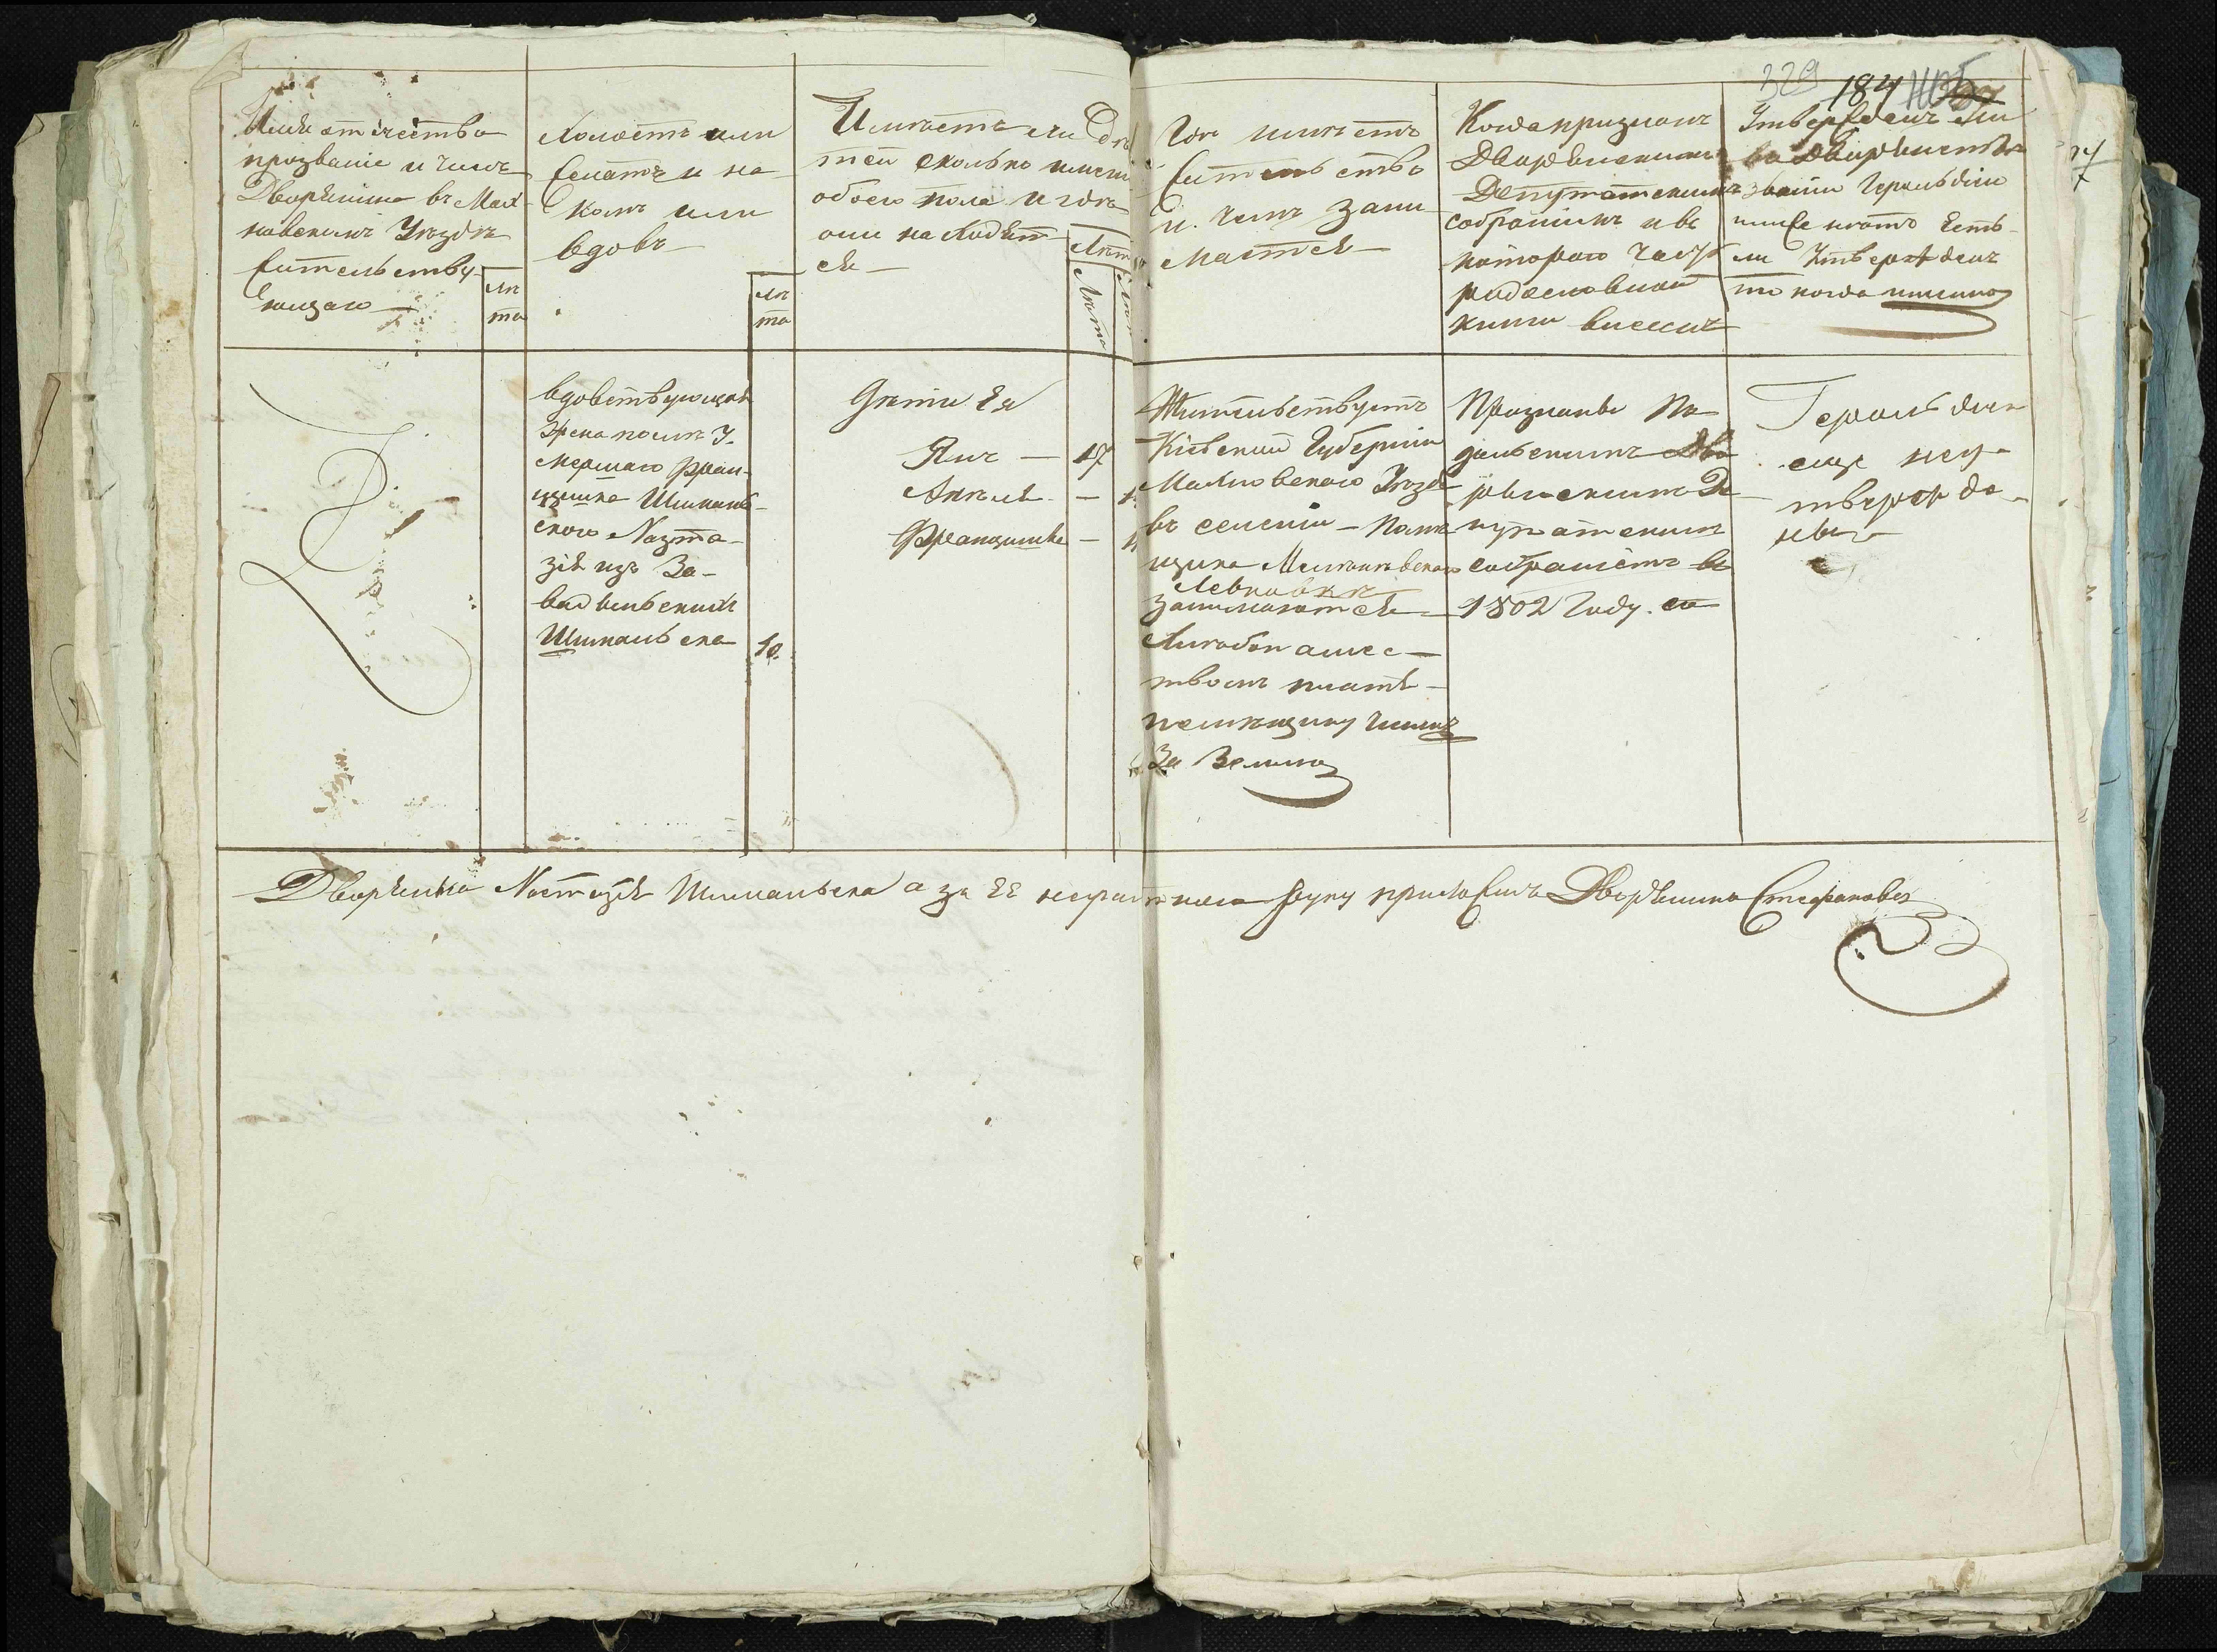 329 184
Имя отчество
прозвание и чинъ
Дворянина въ Мах-
новскомъ Уѣздѣ
жительству-
ющаго
лѣ
та
Холостъ или
женатъ и на
комъ или
вдовъ
лѣ
та
Имѣетъ ли Дѣ
тей сколько имен
обоего пола и гдѣ
они находят
ся
Лѣта
Гдѣ имѣетъ
жительство
и чемъ зани
мается
Когда признанъ
Дворянскимъ
Депутатскимъ
собраніемъ и въ
которого часть
родословной
книги внесенъ
Утвержденъ ли
въ Дворянствѣ
званіи Герольдіи
и ежели нѣтъ Есть
ли Утвержденъ
то когда имянно
вдовствующая
Жена послѣ У-
мершаго Фран-
цишка Шиманъ-
ского Настa-
зія изъ За-
вадынскихъ
Шиманьска 40.
Дѣти Ея
Янъ — 17
Анеля —
Францишка —
Жительствуетъ
Кіевской Губерніи
Махновского Уѣзда
въ селеніи — Помѣ
щика
Левковкѣ
занимается
хлѣбопашес —
твомъ платя —
помѣщику чиншъ
За Землю
Признаны По
дольскимъ Дво
рянскимъ Де
путатскимъ
собраніемъ въ
1802 Году.
Герольдіи
еще неу-
твержде-
ны
Дворянка Настазія Шиманьска а за Её неграмотною Руку приложилъ Дворянинъ Стефановъ